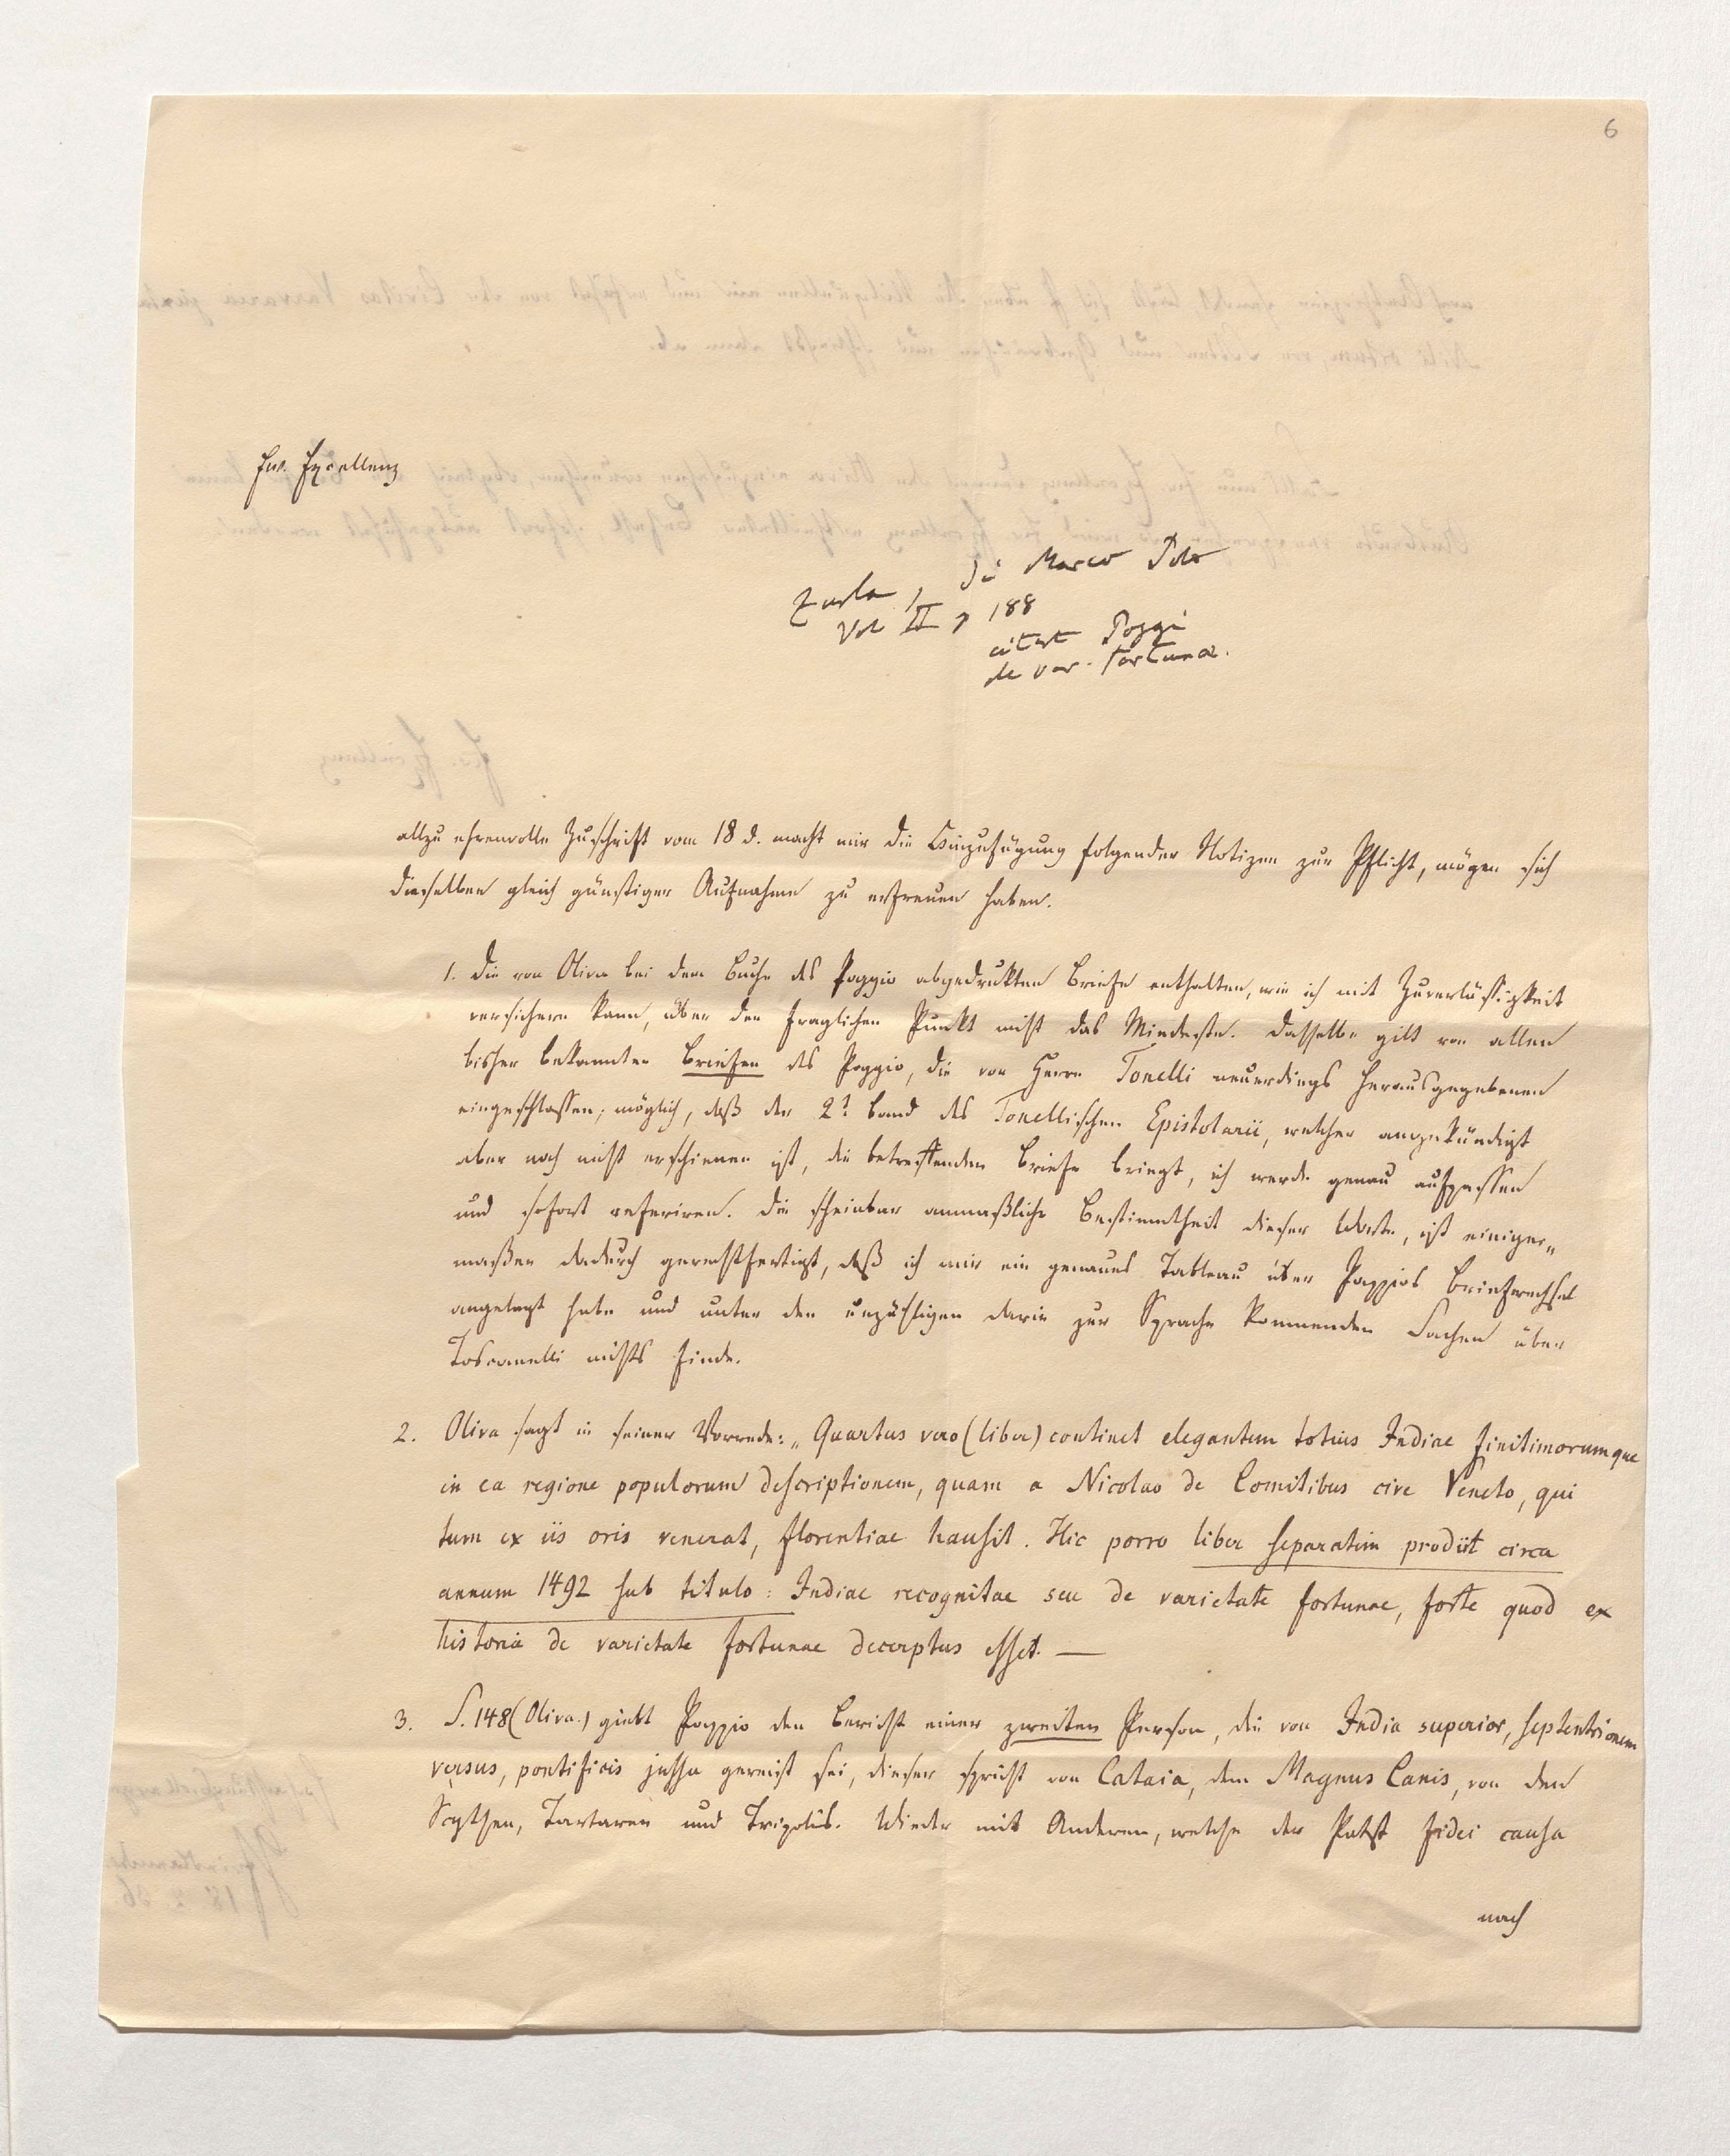 6
Ew. Excellenz
Zurla, di Marco Polo
Vol II p 188
citirt Poggi
de var. fortunae.
allzu ehrenvolle Zuschrift vom 18 d. macht mir die Hinzufügung folgender Notizen zur Pflicht, mögen sich
dieselben gleich günstiger Aufnahme zu erfreuen haben.
1. Die von Oliva bei dem Buche des Poggio abgedrukten Briefe enthalten, wie ich mit Zuverläßigkeit
versichern kann, über den fraglichen Punkt nicht das Mindeste. Dasselbe gilt von allen
bisher bekannten Briefen des Poggio, die von Herrn Tonelli neuerdings herausgegebenen
eingeschlossen; möglich, daß der 2t Band des Tonellischen Epistolarii, welcher angekündigt
aber noch nicht erschienen ist, die betreffenden Briefe bringt, ich werde genau aufpassen
und sofort referiren. Die scheinbar anmaßliche Bestimmtheit dieser Worte, ist einiger„
maßen dadurch gerechtfertigt, daß ich mir ein genaues Tableau über Poggios Briefwechsel
angelegt habe und unter den unzähligen darin zur Sprache kommenden Sachen über
Toscanelli nichts finde.
2. Oliva sagt in seiner Vorrede: „Quartus vero (liber) continet elegantem totius Indiae finitimorumque
in ea regione populorum descriptionem, quam a Nicolao de Comitibus cive Veneto, qui
tum ex iis oris venerat, florentiae hausit. Hic porro liber separatim prodiit circa
annum 1492 sub titulo: Indiae recognitae seu de varietate fortunae, forte quod ex
historia de varietate fortunae decerptus esset. —
3. S. 148 (Oliva.) giebt Poggio den Bericht einer zweiten Person, die von India superior, septentrionem
versus, pontificis jussu gereist sei, dieser spricht von Cataia, dem Magnus Canis, von den
Scythen, Tartaren und Tripolis. Wieder mit Anderen, welche der Pabst fidei causa
nach